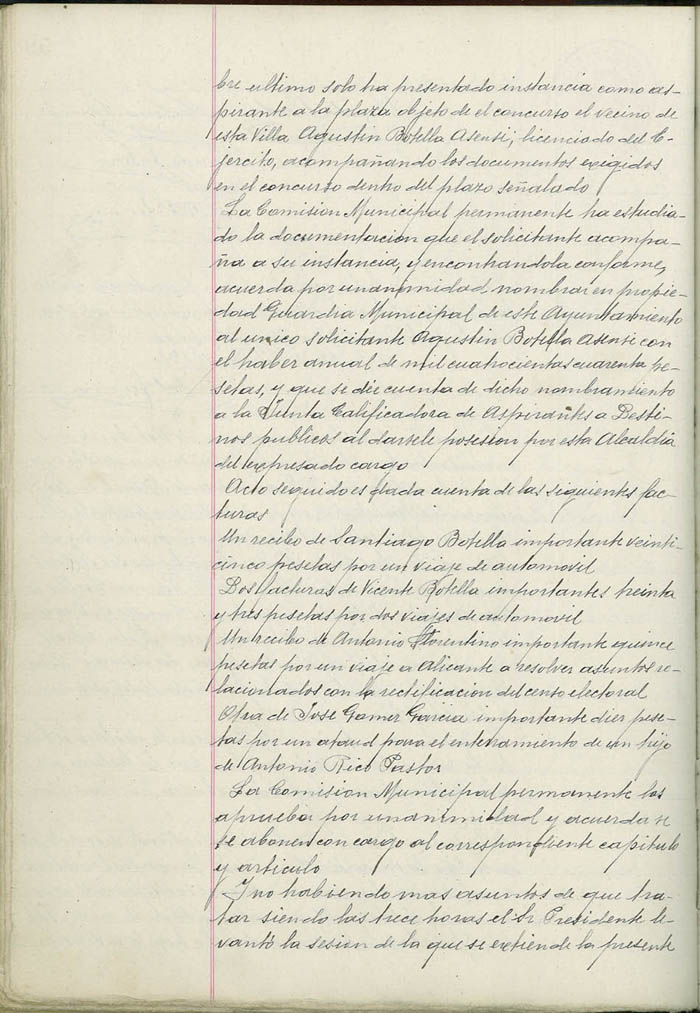 bre ultimo solo ha presentado instancia como as-
pirante a la plaza objeto de el concurso el vecino de
esta Villa Agustin Botella Asensi, licenciado del E-
jercito, acompañando los documentos exigidos
en el concurso dentro del plazo señalado
La Comision Municipal permanente ha estudia-
do la documentacion que el solicitante acompa-
ña a su instancia, y encontrandola conforme,
acuerda por unanimidad nombrar en propie-
dad Guardia Municipal de este Ayuntamiento
al unico solicitante Agustin Botella Asensi con
el haber anual de mil cuatrocientas cuarenta pe-
setas, y que se dé cuenta de dicho nombramiento
a la Junta Calificadora de Aspirantes a Desti-
nos publicos al darsele posesion por esta Alcaldia
del expresado cargo
Acto seguido es dada cuenta de las siguientes fac-
turas
Un recibo de Santiago Botella importante veinti-
cinco pesetas por un viaje de automovil
Dos facturas de Vicente Botella importantes treinta
y tres pesetas por dos viajes de automovil
Un recibo de Antonio Florentino importante quince
pesetas por un viaje a Alicante a resolver asuntos re-
lacionados con la rectificacion del censo electoral
Otra de José Gomez Garcia importante diez pese-
tas por un ataud para el enterramiento de un hijo
de Antonio Rico Pastor
La Comision Municipal permanente las
aprueba por unanimidad y acuerda se
se abonen con cargo al correspondiente capitulo
y articulo
Y no habiendo mas asuntos de que tra-
tar siendo las trece horas el Sr Presidente le-
vantó la sesion de la que se extiende la presente